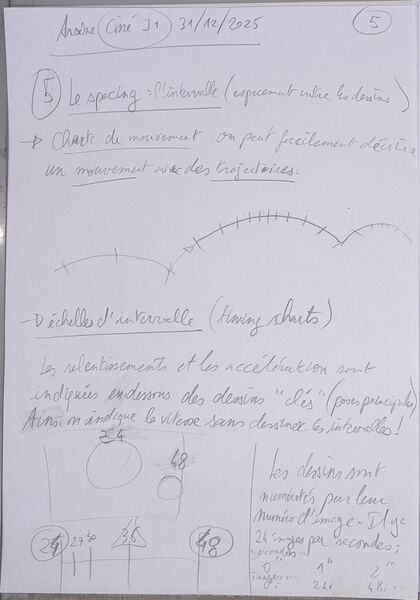 Arsène Ciné J1 31/12/2025
5
5 Le spacing : l'intervalle (espacement entre les dessins)
→ Charte de mouvement on peut facilement décrire
un mouvement avec des trajectoires.
→ échelles d'intervalle (timing charts)
Les ralentissements et les accélération sont
indiquées en dessous des dessins "clés" (poses principales)
Ainsi on indique la vitesse sans dessiner les intervalles !
24
48
24 27 30 36 48
Les dessins sont
numérotés par leur
numéro d'image. Il y a
24 images par secondes :
secondes
0" 1" 2"
images 24i 48i